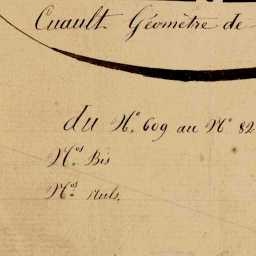 Cuault Géomètre de
du N.º 609 au Nº 82
N.ºs Bis
N.ºs nuls.